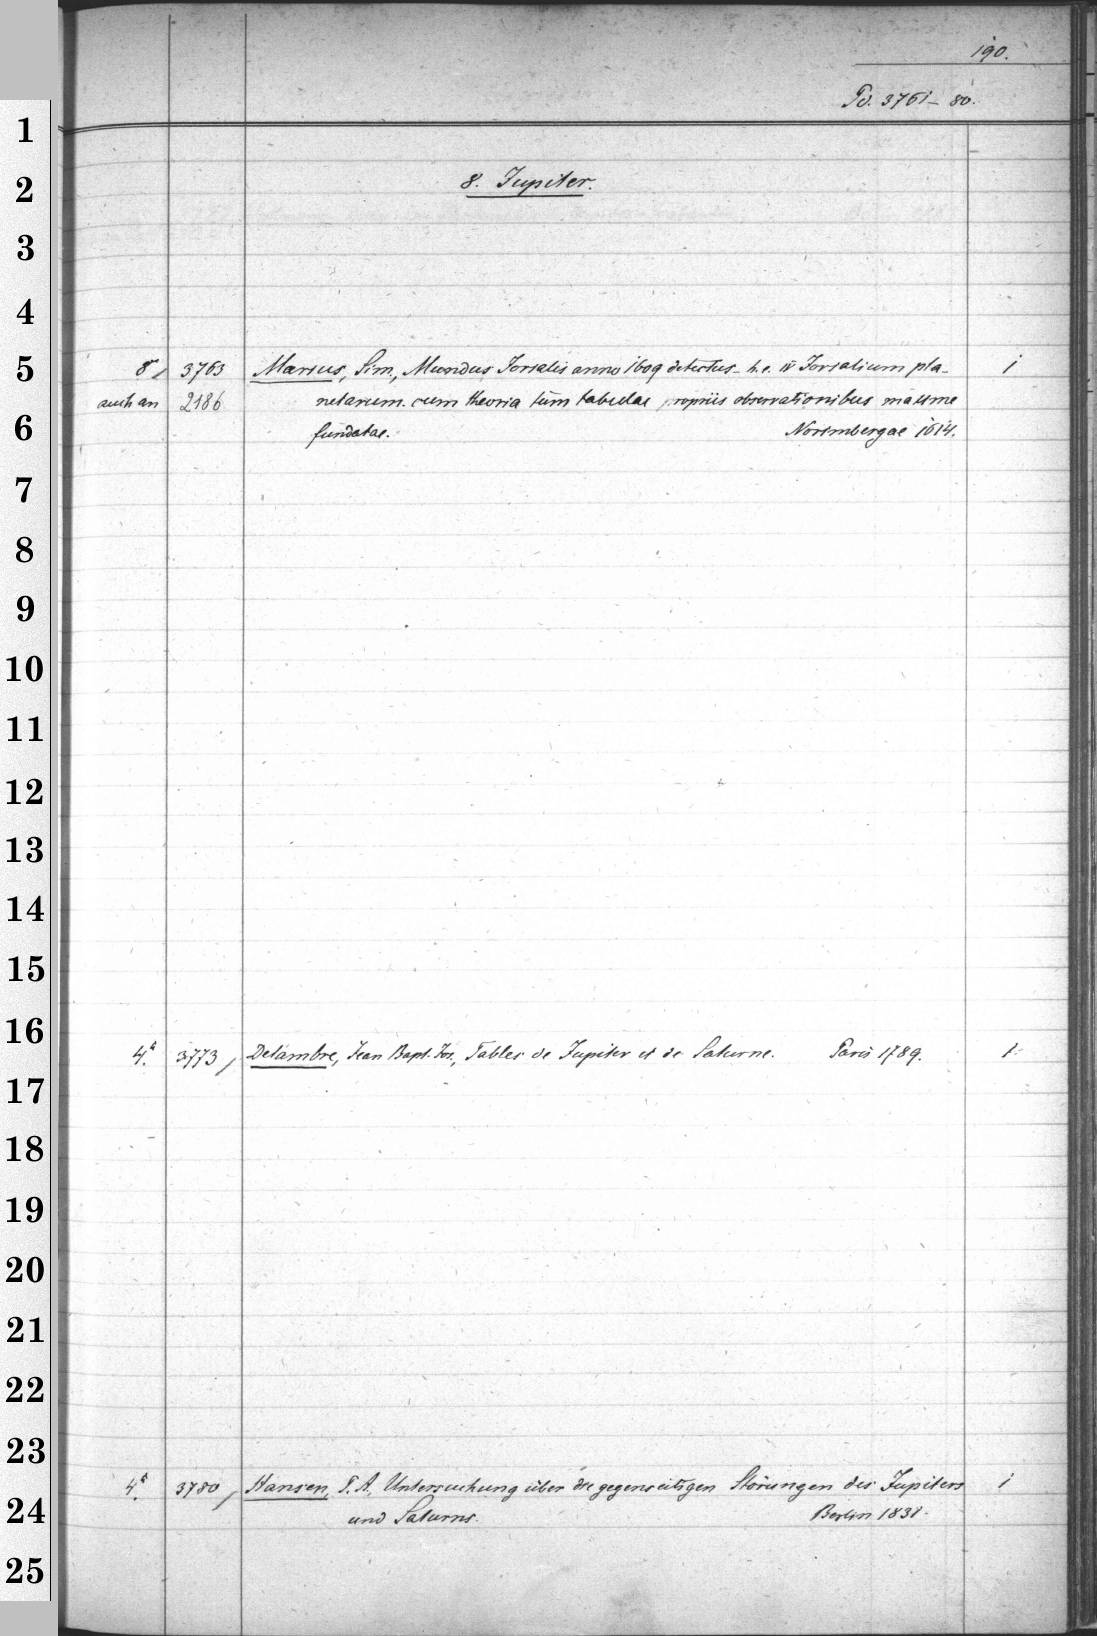 190.
Pd. 3761–80.
1
2
8. Jupiter.
3
4
5
8°, 3763 Marius, Sim., Mundus Jovialis anno 1609 detectus h. e. IV Jovialium pla- 1
auch an 2186 netarum cum theoria tum tabulae propriis observationibus maxime
6
fundatae. Norimbergae 1614.
7
8
9
10
11
12
13
14
15
16
4°. 3773, Delambre, Jean Bapt. Jos., Tables de Jupiter et de Saturne. Paris 1789. 1
17
18
19
20
21
22
23
4°. 3780, Hansen, P. A., Untersuchung über die gegenseitigen Störungen des Jupiters 1
24
und Saturns. Berlin 1831.
25